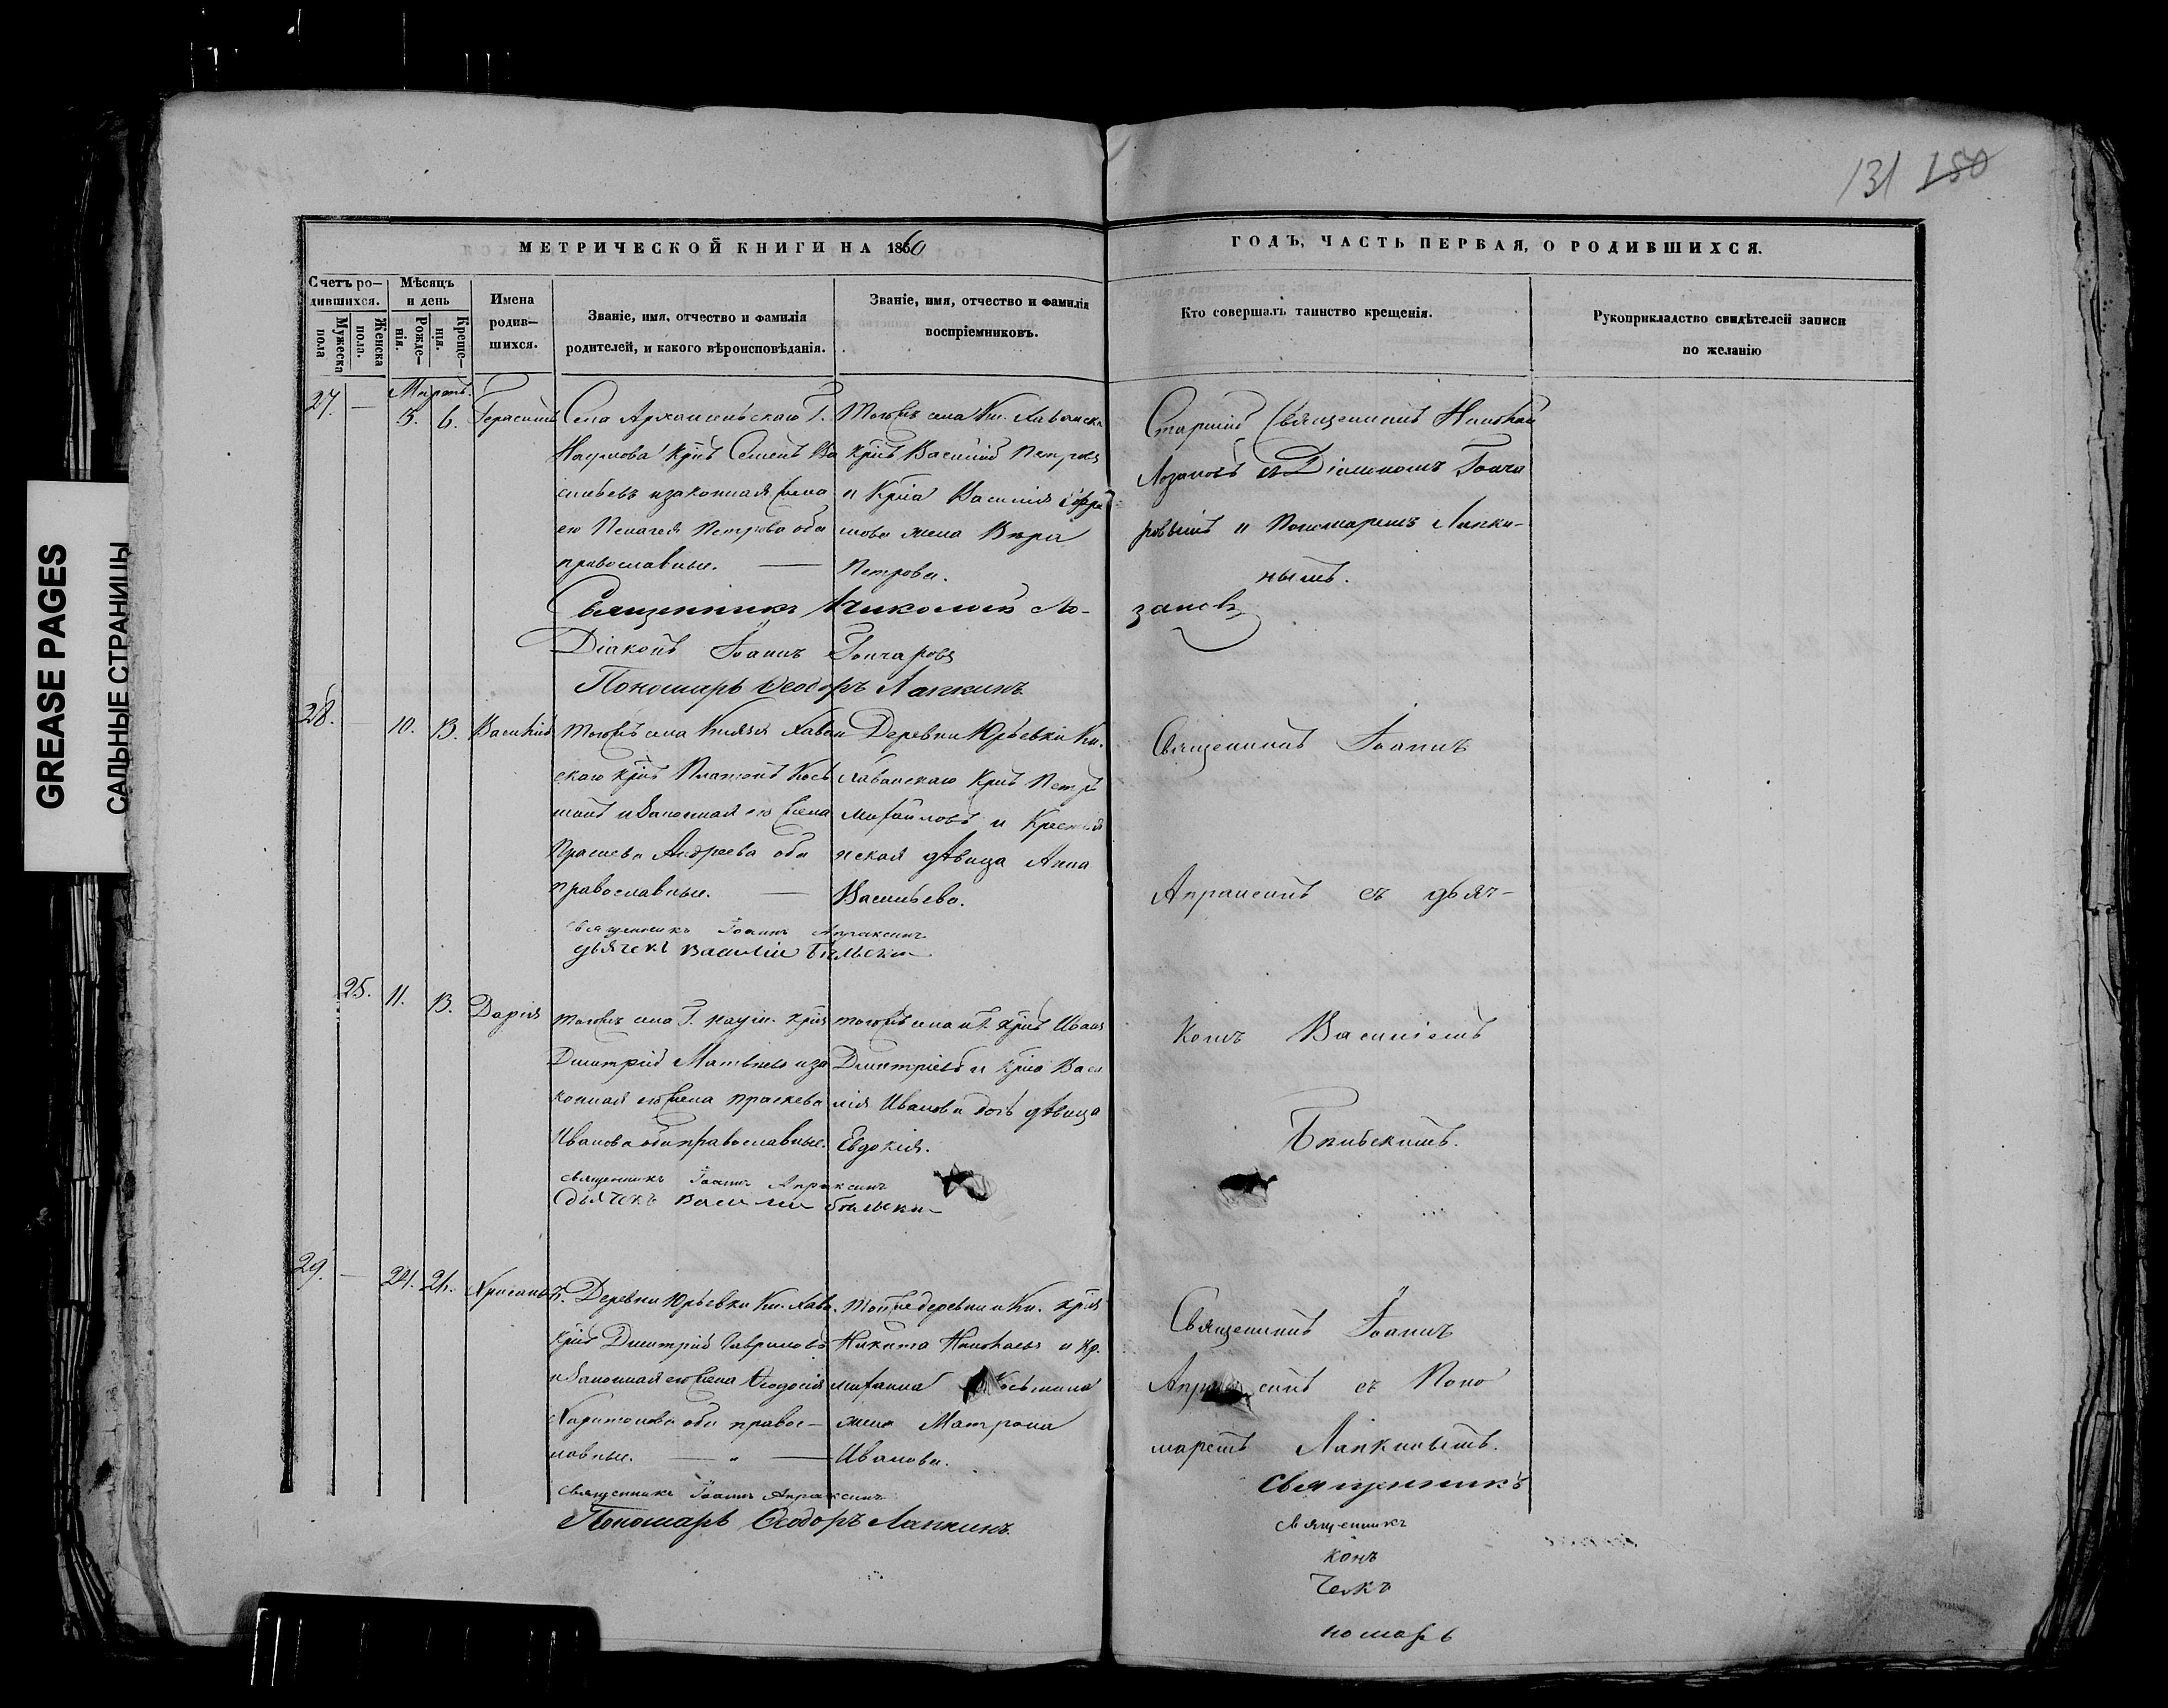 131 150
МЕТРИЧЕСКОЙ КНИГИ НА 1860
ГОДЪ, ЧАСТЬ ПЕРВАЯ, О РОДИВШИХСЯ.
Счетъ ро-
дившихся.
Мужеска пола
Женска пола.
Мѣсяцъ
и день
Рожде-
нія.
Креще-
нія.
Имена
родив-
шихся.
Званіе, имя, отчество и фамилія
родителей, и какого вѣроисповѣданія.
Званіе, имя, отчество и фамилія
воспріемниковъ.
Кто совершалъ таинство крещенія.
Рукоприкладство свидѣтелей записи
по желанію
GREASE PAGES
САЛЬНЫЕ СТРАНИЦЫ
Мартъ.
27. — 5. 6. Герасимъ
Села Архангельскаго Г.
Наумова Крнъ Семенъ Ва
сильевъ изаконная жена
его Пелагея Петрова оба
православные. —
Тогожъ села Кн.
Крнъ Василій Петровъ
и Крна Василія
жена Вѣра
Петрова.
Старшій Священникъ Николай
Лозановъ съ Діакономъ Гонча
ровымъ и Пономаремъ Лапки-
нымъ.
Священникъ Николай Ло-
зановъ
Діаконъ Іоаннъ Гончаровъ
Пономарь Ѳеодоръ Лапкинъ
28. — 10. 13. Василій
Тогожъ села Князя Хован
скаго Крнъ Платонъ Кось
минъ и Законная его жена
Андреева оба
православные. —
Деревни Юрьевки Кн.
Хованскаго Крнъ Петръ
Михайловъ и Крестья
нская дѣвица Анна
Васильева.
Священникъ Іоаннъ
Апраксинъ съ дьяч-
Священникъ Іоаннъ Апраксинъ
дьячекъ Василій Бѣльскій
25. 11. 13. Дарія
Тогожъ села Г. Наум. Крнъ
Дмитрій Матвѣевъ иза
конная его жена Праскева
Иванова оба православные.
Тогожъ села иГ. Крнъ Иванъ
Дмитріевъ и Крна Васи
лія Иванова дочь дѣвица
Евдокія.
комъ Василіемъ
Бѣльскимъ.
Священникъ Іоаннъ Апраксинъ
дьячекъ Василій Бѣльскій
29. — 24. 26. Хрисанѳъ.
Деревни Юрьевки Кн. Хова.
Крнъ Дмитрій Гавриловъ
и Законная его жена Ѳеодосія
Харитонова оба правос-
лавные. — " —
Тойже деревни и Кн. Крнъ
Никита Николаевъ и Кр.
Косьмина
жена Матрона
Иванова.
Священникъ Іоаннъ
Апраксинъ съ Поно
маремъ Лапкинымъ.
Священникъ Іоаннъ Апраксинъ
Пономарь Ѳеодоръ Лапкинъ.
Священникъ
Священникъ
конъ
чекъ
номарь